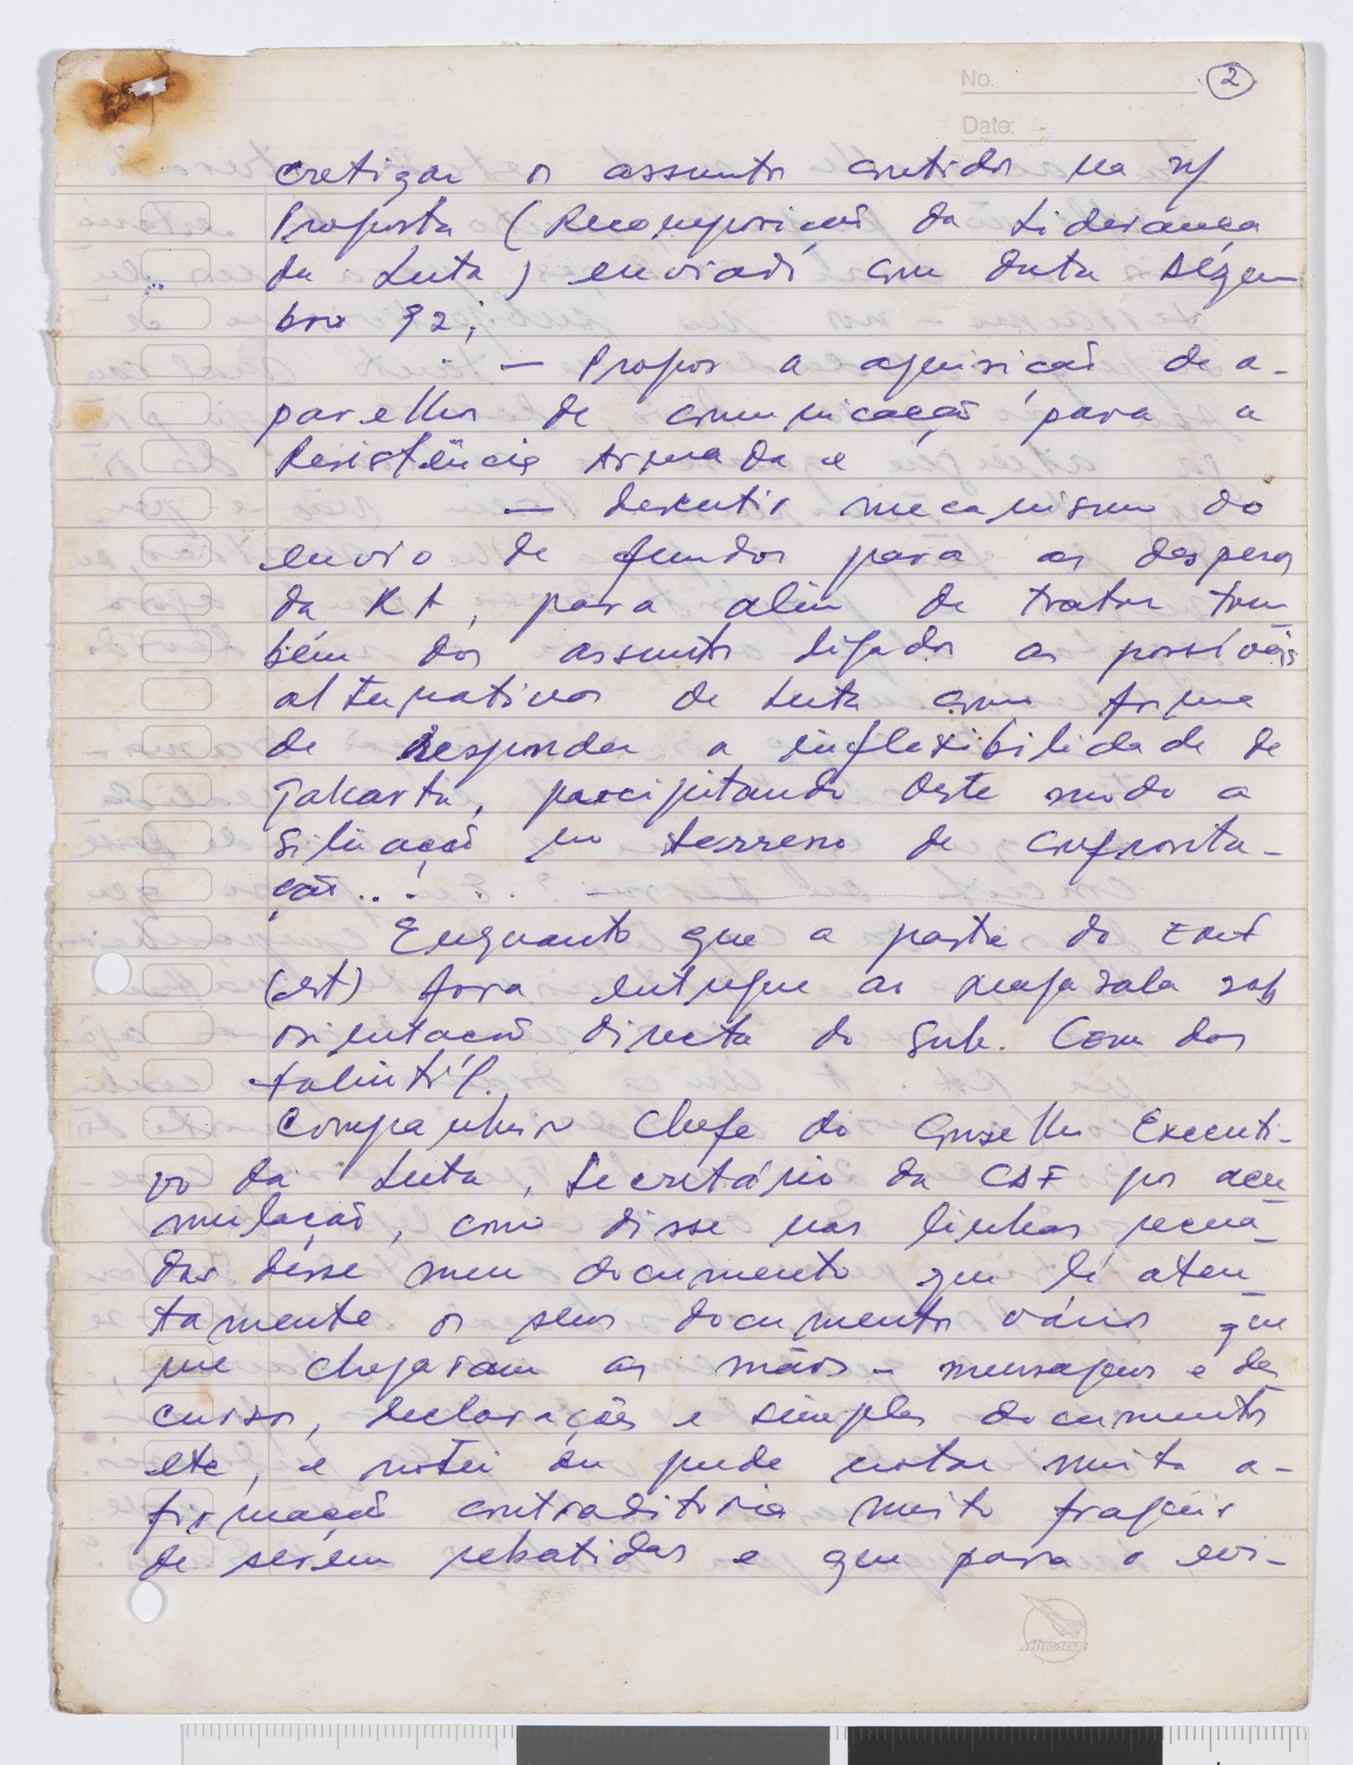 No. 2
Date:
cretizar o assunto contido na
Proposta (Recomposição da Liderança
da Luta) enviado com data Dezem
bro 92;
— Propor a aquisição de a-
parelhos de comunicação para a
Resistência Armada e
— Descutir mecanismo do
envio de fundos para as despesas
da RA, para além de tratar tam
bém dos assuntos ligados as possíveis
alternativas de Luta como forma
de responder a inflexibilidade de
Jakarta, precipitando deste modo a
situação no terreno de confronta-
ção...
Enquanto que a pasta do
(est) fora entregue ao sob
orientação directa do Sub. Com das
Falintil.
Companheiro Chefe do Conselho Executi-
vo da Luta, Secretário da CDF por acu
mulação, como disse nas linhas recua-
das desse meu documento que li aten
tamente os seus documentos vários que
me chegaram as mãos - mensagens e des
cursos, declarações e simples documentos
etc, e notei ou pude notar muita a-
firmação contraditoria muito frageis
de serem rebatidas e que para o evi-